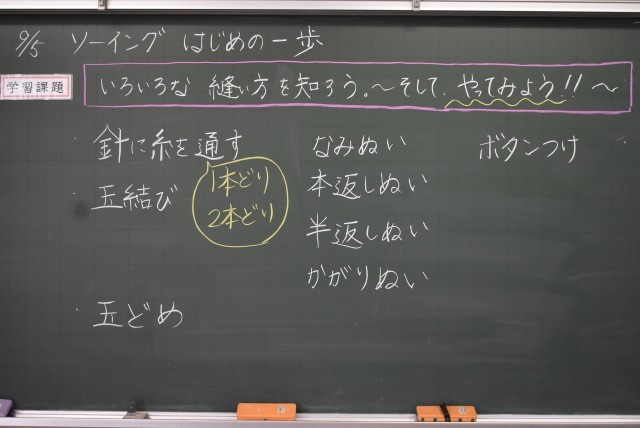 9/5 ソーイング はじめの一歩
学習課題
いろいろな 縫い方を知ろう。～そして、やってみよう!!～
・針に糸を通す
1本どり
2本どり
・玉結び
・玉どめ
なみぬい
本返しぬい
半返しぬい
かがりぬい
ボタンつけ